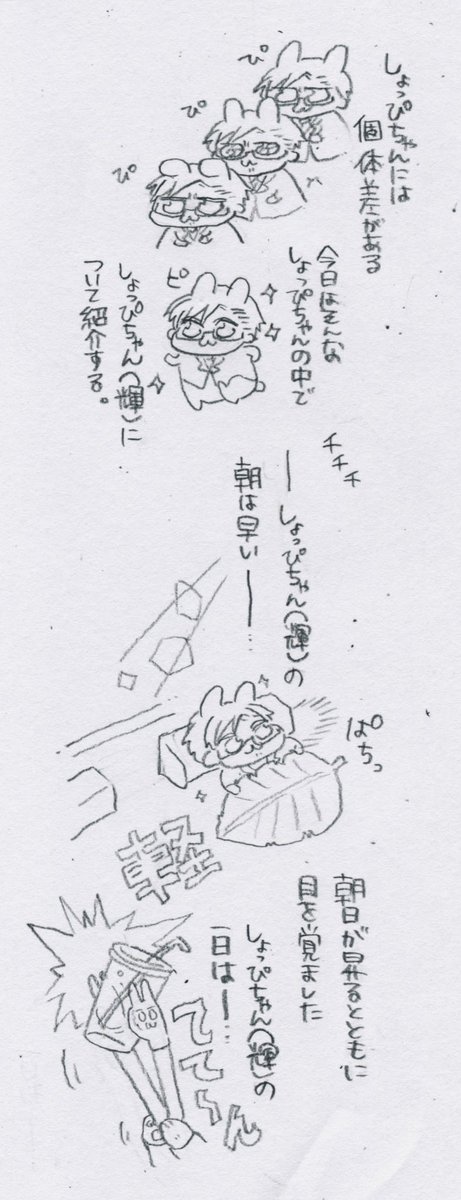 しょっぴちゃんには
個体差がある
ぴ
ぴ
ぴ
今日はそんな
しょっぴちゃんの中で
しょっぴちゃん(輝)に
ついて紹介する。
ピ
チチチ
ーしょっぴちゃん(輝)の
朝は早いー…
ぱちっ
朝日が昇るとともに
目を覚ました
しょっぴちゃん(輝)の
一日はー…